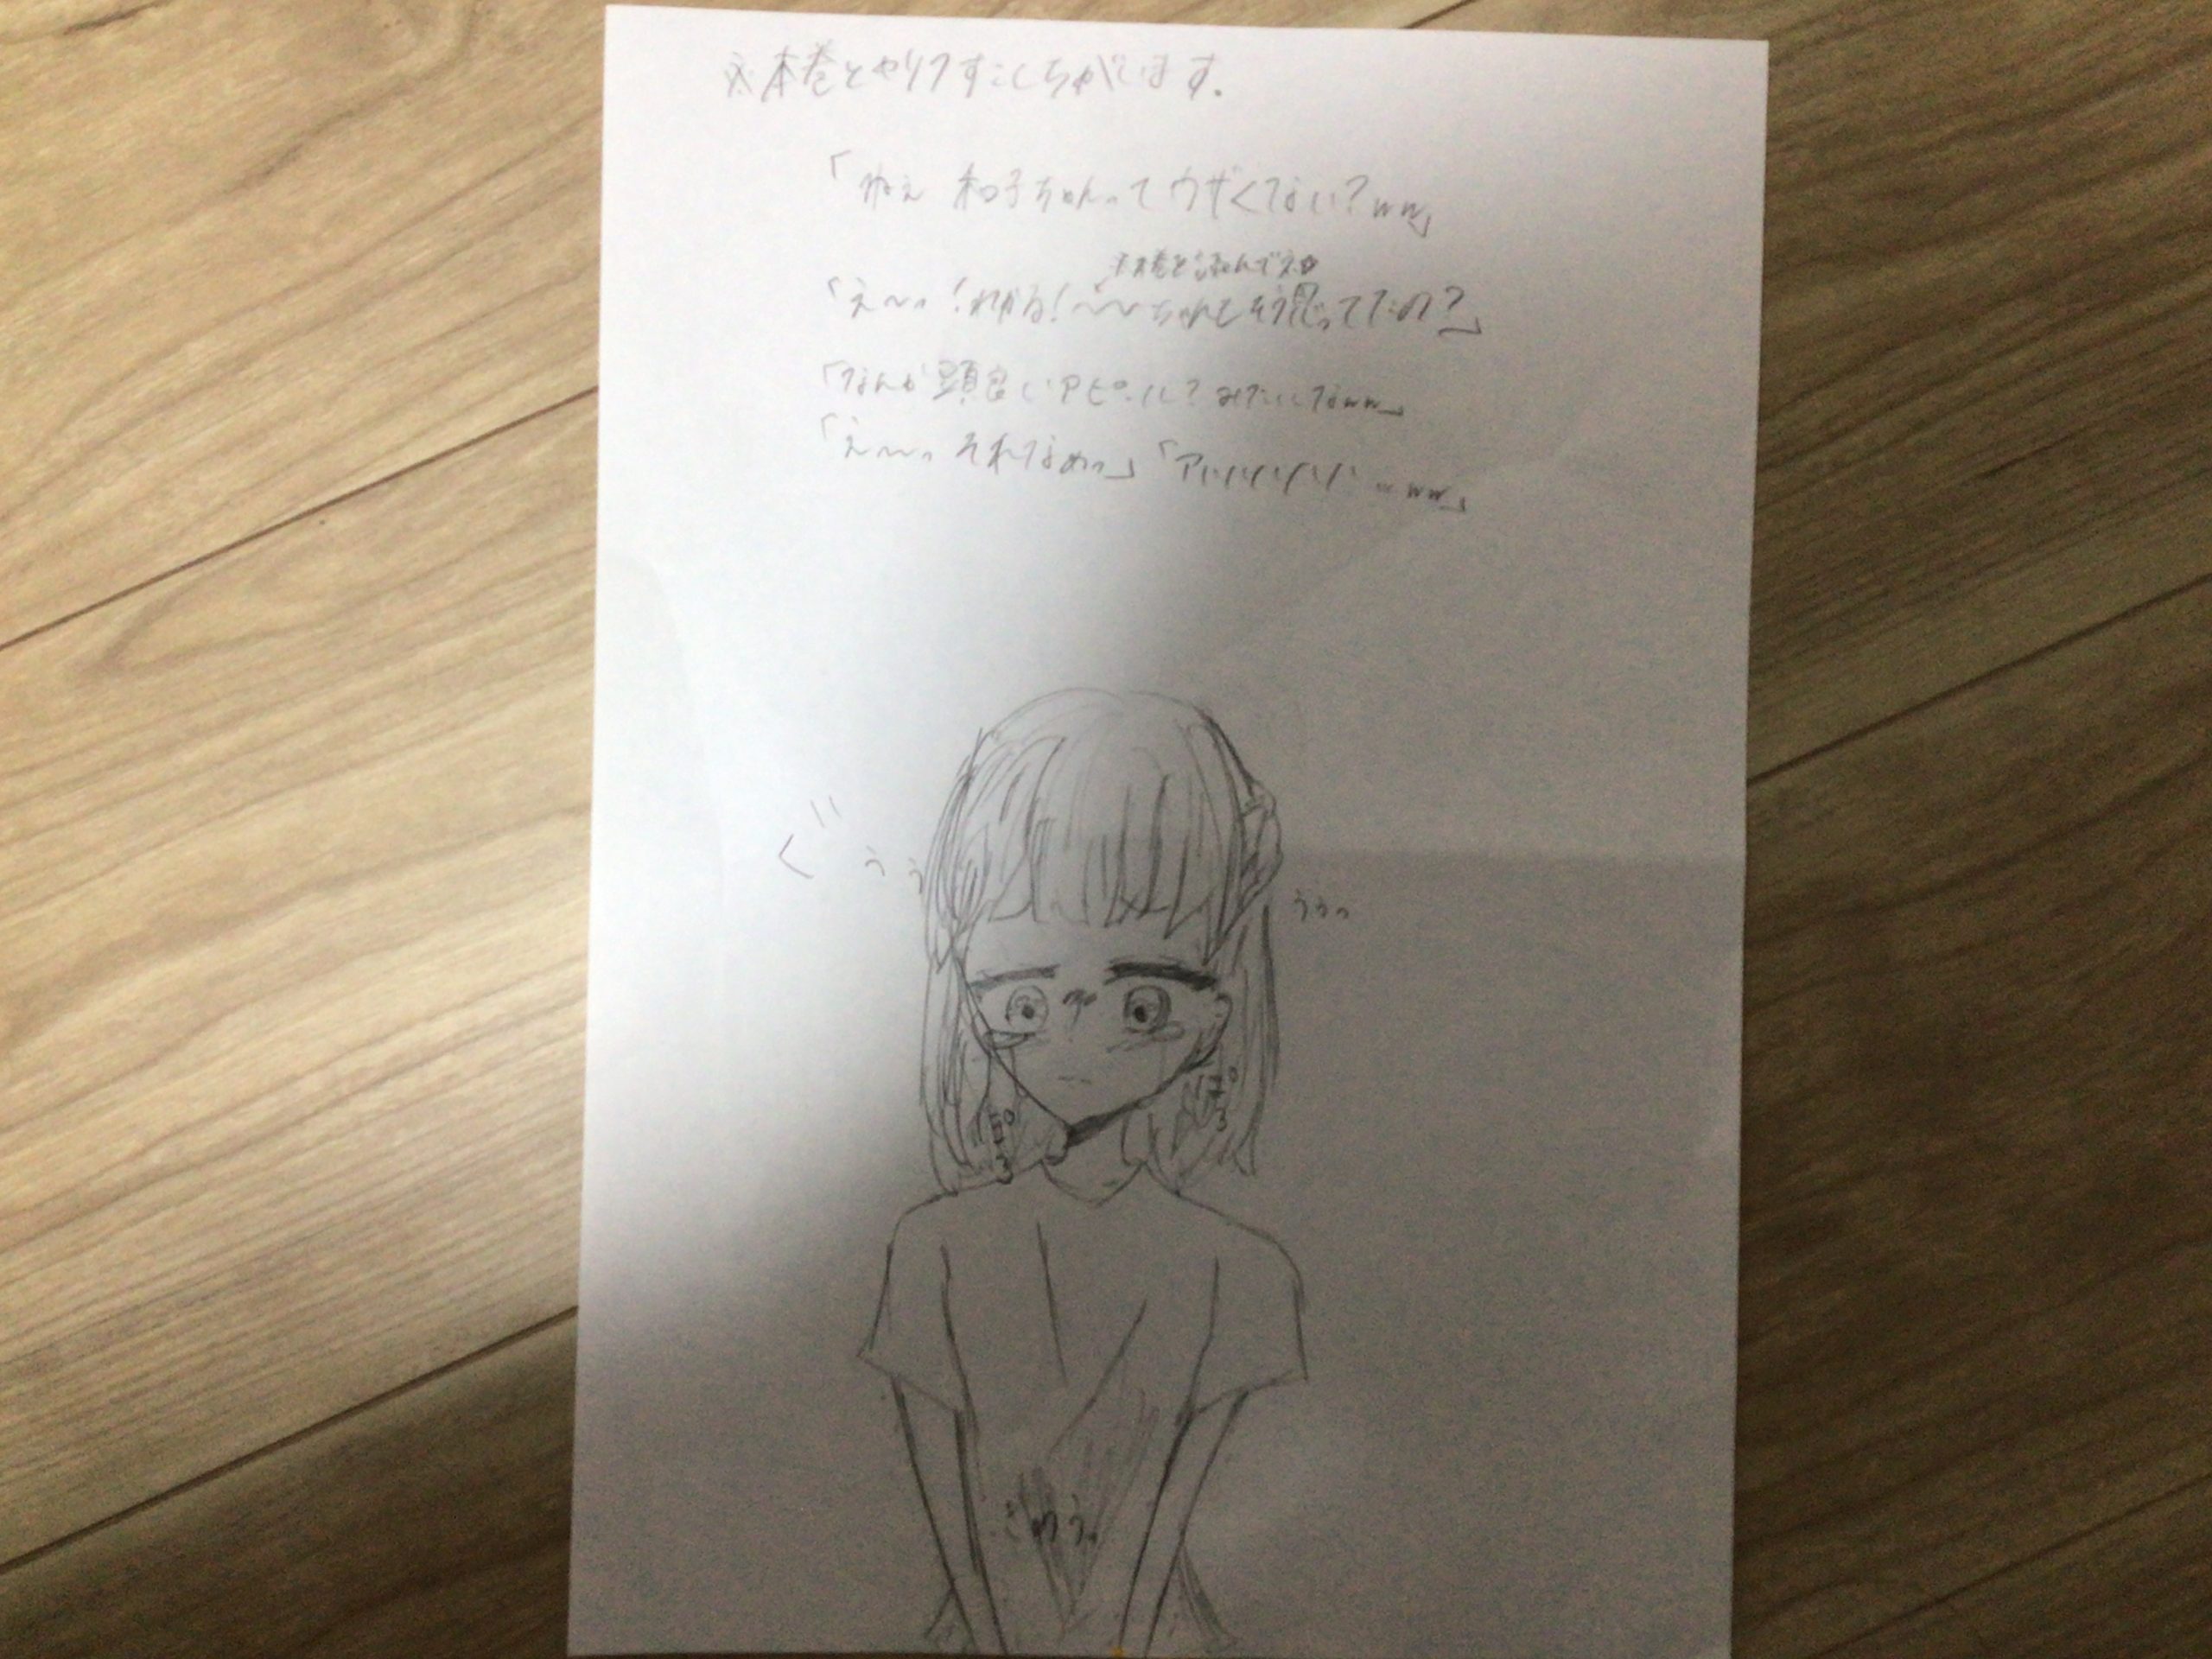 ※本巻とやりすこしちがいます.
「ねぇ 和子ちゃんってウザくない?ww」
本巻を読んでネ☆
「え〜っ!わかる!〜〜ちゃんもそう思ってたの?」
「なんか頭良いアピール?みたいなww」
「え〜っそれなめっ」「アハハハハハ www」
ぐぅぅ
ぅぅっ
ぽろ
ぽろ
ぎゅうっ